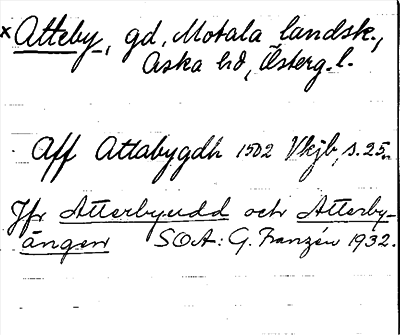 x Atteby, gd, Motala landsk.,
Aska hd, Österg. l.
Aff Attabygdh 1502 Vkjb, s. 25.
Jfr Atterbyudd och Atterby-
ängen SOA: G. Franzén 1932.